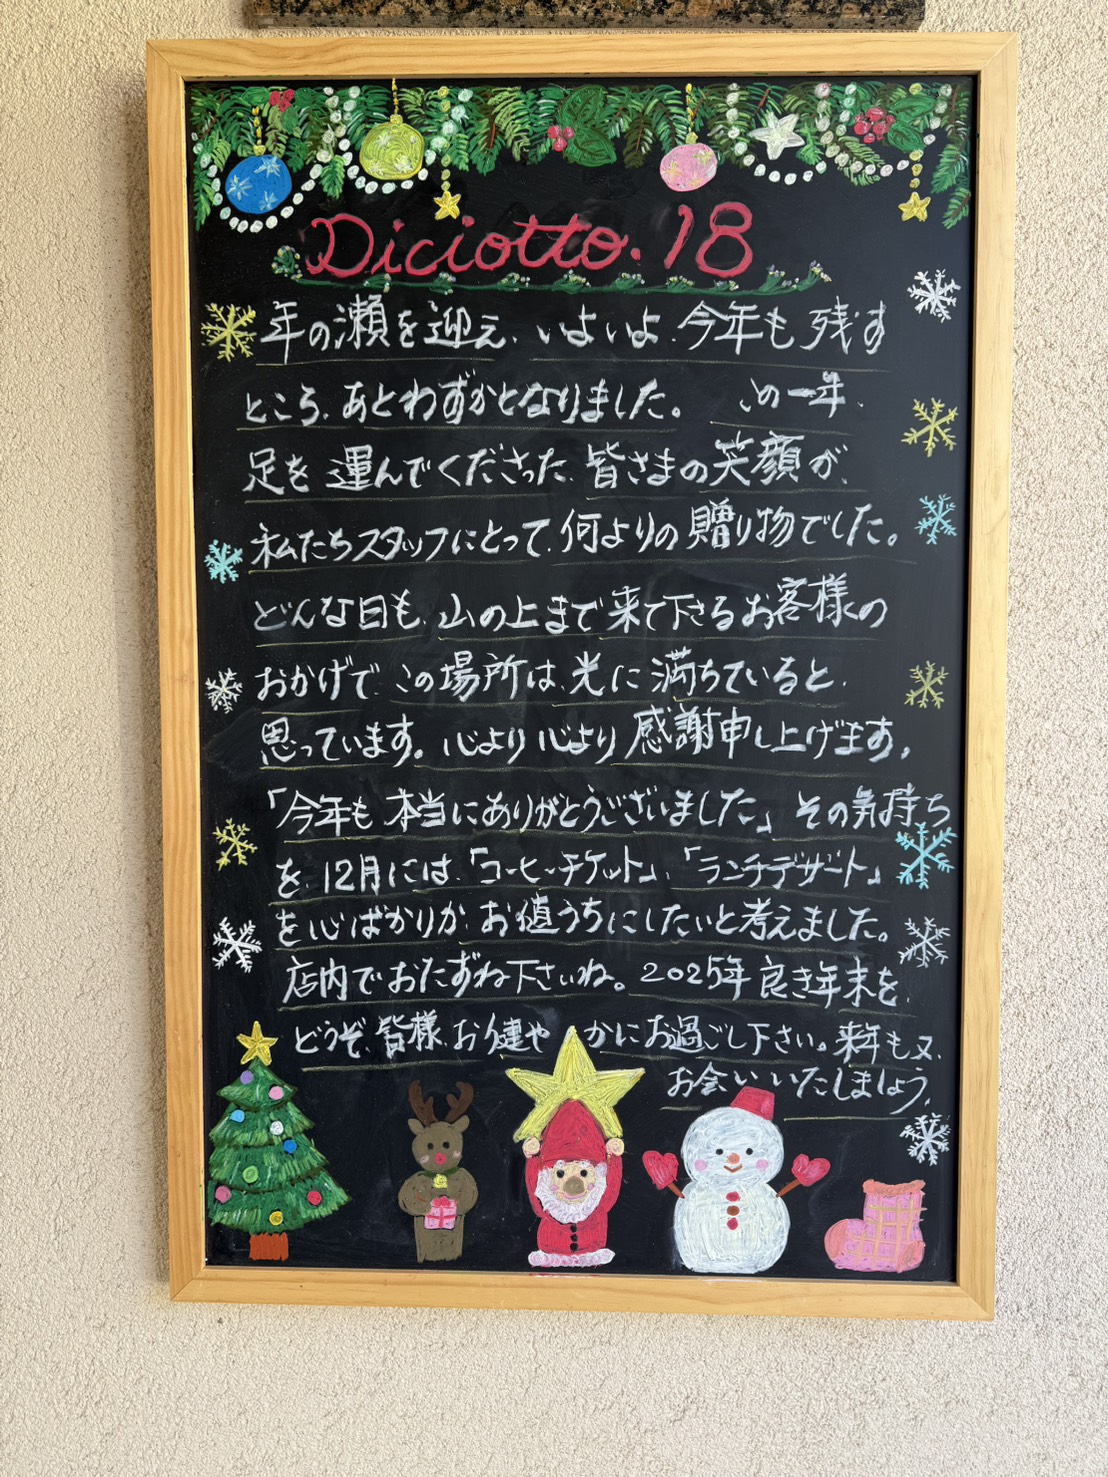 Diciotto.18
年の瀬を迎え、いよいよ、今年も残す
ところ、あとわずかとなりました。 この一年、
足を運んでくださった、皆さまの笑顔が、
私たちスタッフにとって、何よりの贈り物でした。
どんな日も、山の上まで来て下さるお客様の
おかげで、この場所は、光に満ちていると、
思っています。心より心より感謝申し上げます。
「今年も本当にありがとうございました」その気持ち
を、12月には、「コーヒーチケット」、「ランチデザート」
を心ばかりか、お値うちにしたいと考えました。
店内でおたずね下さいね。2025年良き年末を、
どうぞ、皆様、お健やかにお過ごし下さい。来年も又、
お会いいたしましょう。